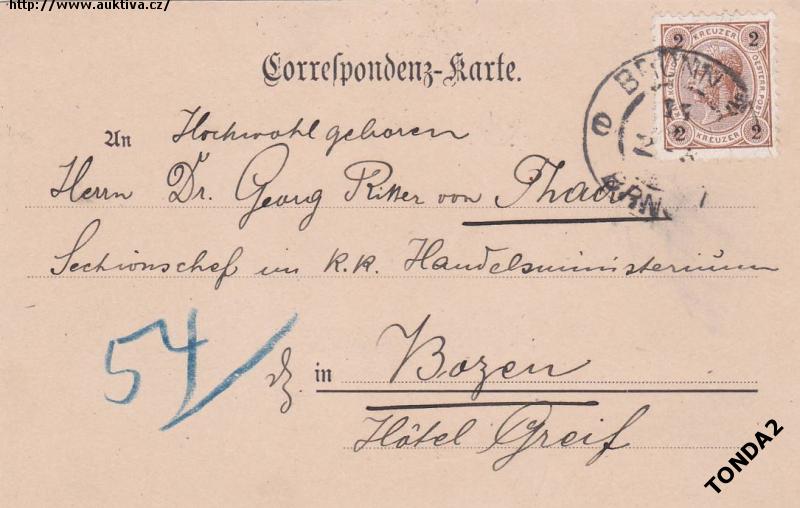 http://www.auktiva.cz/
Correſpondenz-Karte.
2 KREUZER 2
2 KREUZER 2
BRÜNN
BRNO
An Hochwohlgeboren
Herrn Dr. Georg Ritter von
Sectionschef im k.k. Handelsministerium
54/
in Bozen
Hôtel Greif
TONDA2